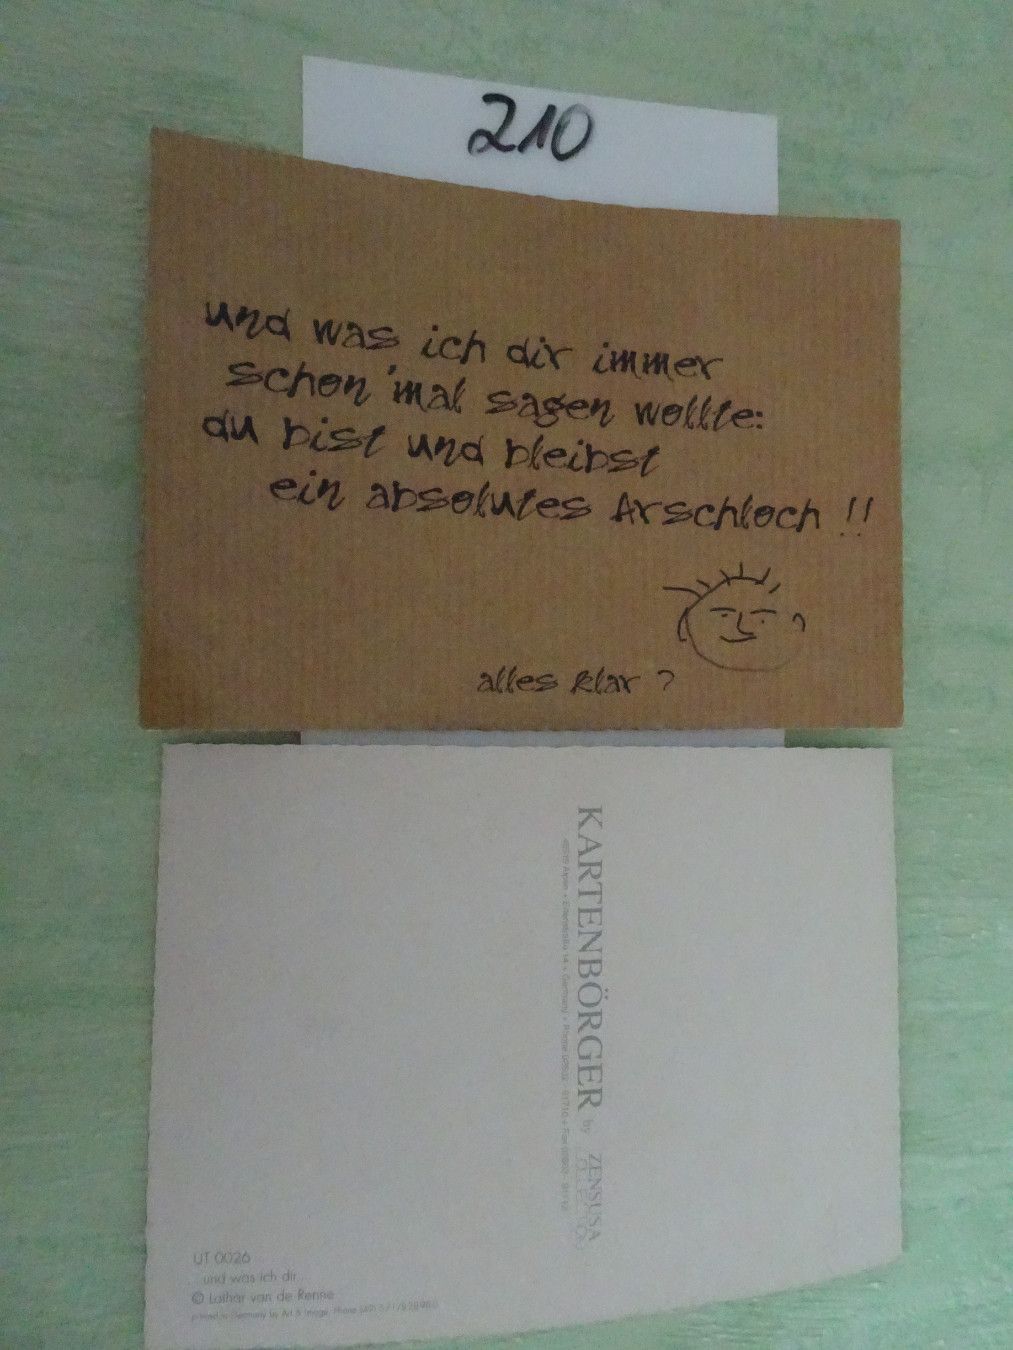 210
und was ich dir immer
schon 'mal sagen wollte:
du bist und bleibst
ein absolutes Arschloch !!
alles klar ?
KARTENBÖRGER by ZENSUSA
Germany
UT 0026
...und was ich dir...
© Lothar van de Renne
printed in Germany by Art & Image, Phone